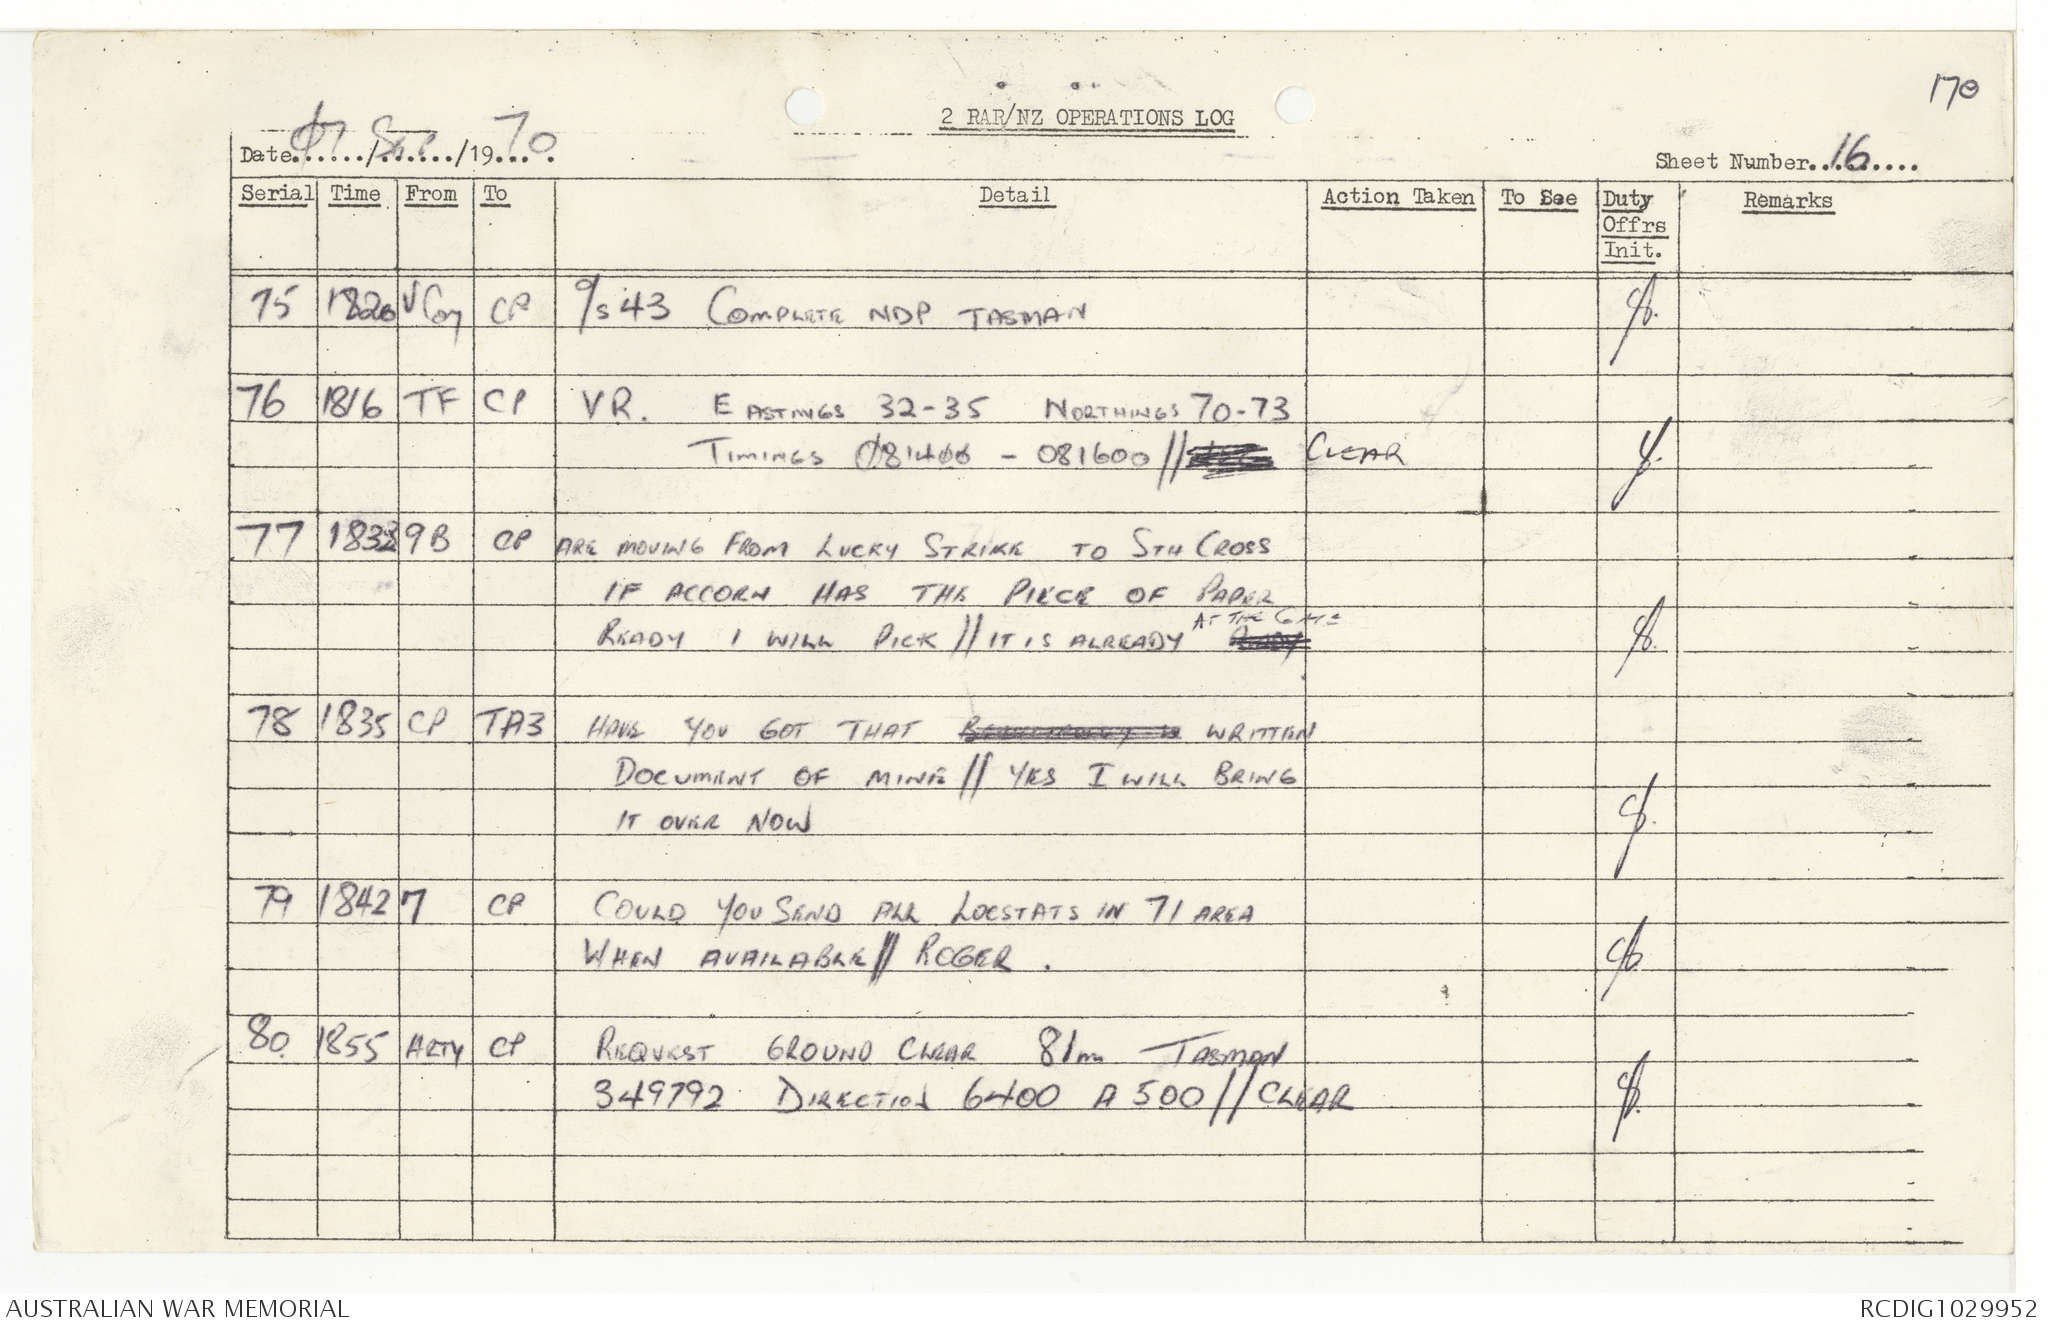 170
2 RAR/NZ OPERATIONS LOG
Date 07/Sep/1970
Sheet Number 16
Serial Time From To Detail Action Taken To See Duty Offrs Init. Remarks
75 1820 V Coy CP C/S 43 COMPLETE NDP TASMAN
76 1816 TF CP VR. EASTINGS 32-35 NORTHINGS 70-73
TIMINGS 081400 - 081600 // CLEAR
77 1833 9B CP ARE MOVING FROM LUCKY STRIKE TO STH CROSS
IF ACCORN HAS THE PIECE OF PAPER
READY I WILL PICK // IT IS ALREADY AT THE GATE
78 1835 CP TA3 HAVE YOU GOT THAT WRITTEN
DOCUMENT OF MINE // YES I WILL BRING
IT OVER NOW
79 1842 7 CP COULD YOU SEND ALL LOCSTATS IN 71 AREA
WHEN AVAILABLE // ROGER .
80. 1855 ARTY CP REQUEST GROUND CLEAR 81mm TASMAN
349792 DIRECTION 6400 A 500 // CLEAR
AUSTRALIAN WAR MEMORIAL
RCDIG1029952